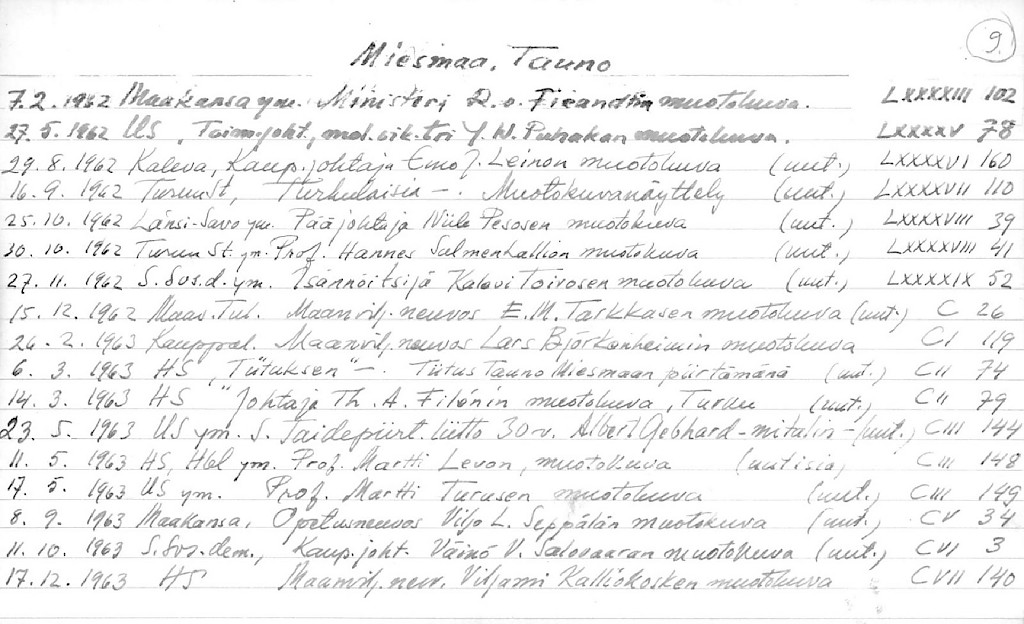 9.
Miesmaa, Tauno
7.2. 1962 Maakansa ym. Ministeri R. v. Fieandtin muotokuva. LXXXXIII 102
27. 5. 1962 US, Toim.joht., mol. oik. tri Y. W. Puhakan muotokuva. LXXXXV 78
29. 8. 1962 Kaleva, Kaup.johtaja Eino J. Leinon muotokuva (uut.) LXXXXVI 160
16. 9. 1962 TurunSt, Turkulaisia –. Muotokuvanäyttely (uut.) LXXXXVII 110
25. 10. 1962 Länsi-Savo ym. Pääjohtaja Niilo Pesosen muotokuva (uut.) LXXXXVIII 39
30. 10. 1962 Turun St. ym. Prof. Hannes Salmenkallion muotokuva (uut.) LXXXXVIII 41
27. 11. 1962 S. Sos.d. ym. Isännöitsijä Kalevi Toivosen muotokuva (uut.) LXXXXIX 52
15. 12. 1962 Maas. Tul. Maanvilj. neuvos E. M. Tarkkasen muotokuva (uut.) C 26
26. 2. 1963 Kauppal. Maanvilj. neuvos Lars Björkenheimin muotokuva CI 119
6. 3. 1963 HS "Tiituksen" –. Tiitus Tauno Miesmaan piirtämänä (uut.) CII 74
14. 3. 1963 HS Johtaja Th. A. Filénin muotokuva, Turku (uut.) CII 79
23. 5. 1963 US ym. S. Taidepiirt. liitto 30 v. Albert Gebhard-mitalin – (uut.) CIII 144
11. 5. 1963 HS, Hbl ym. Prof. Martti Levon, muotokuva (uutisia) CIII 148
17. 5. 1963 US ym. Prof. Martti Turusen muotokuva (uut.) CIII 149
8. 9. 1963 Maakansa, Opetusneuvos Viljo L. Seppälän muotokuva (uut.) CV 34
11. 10. 1963 S. Sos.dem., Kaup.joht. Väinö V. Salovaaran muotokuva (uut.) CVI 3
17. 12. 1963 HS Maanvilj. neuv. Viljami Kalliokosken muotokuva CVII 140